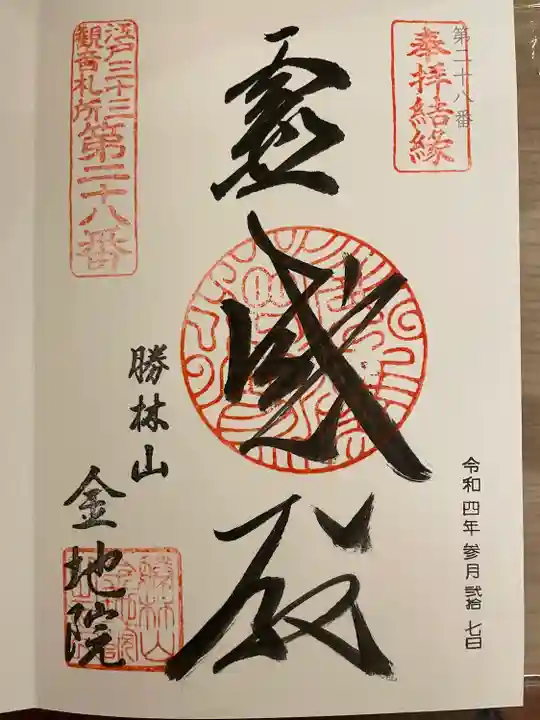 第二十八番
奉拝結縁
令和四年 参月 弐拾 七日
霊感殿
江戸三十三
観音札所 第二十八番
勝林山
金地院